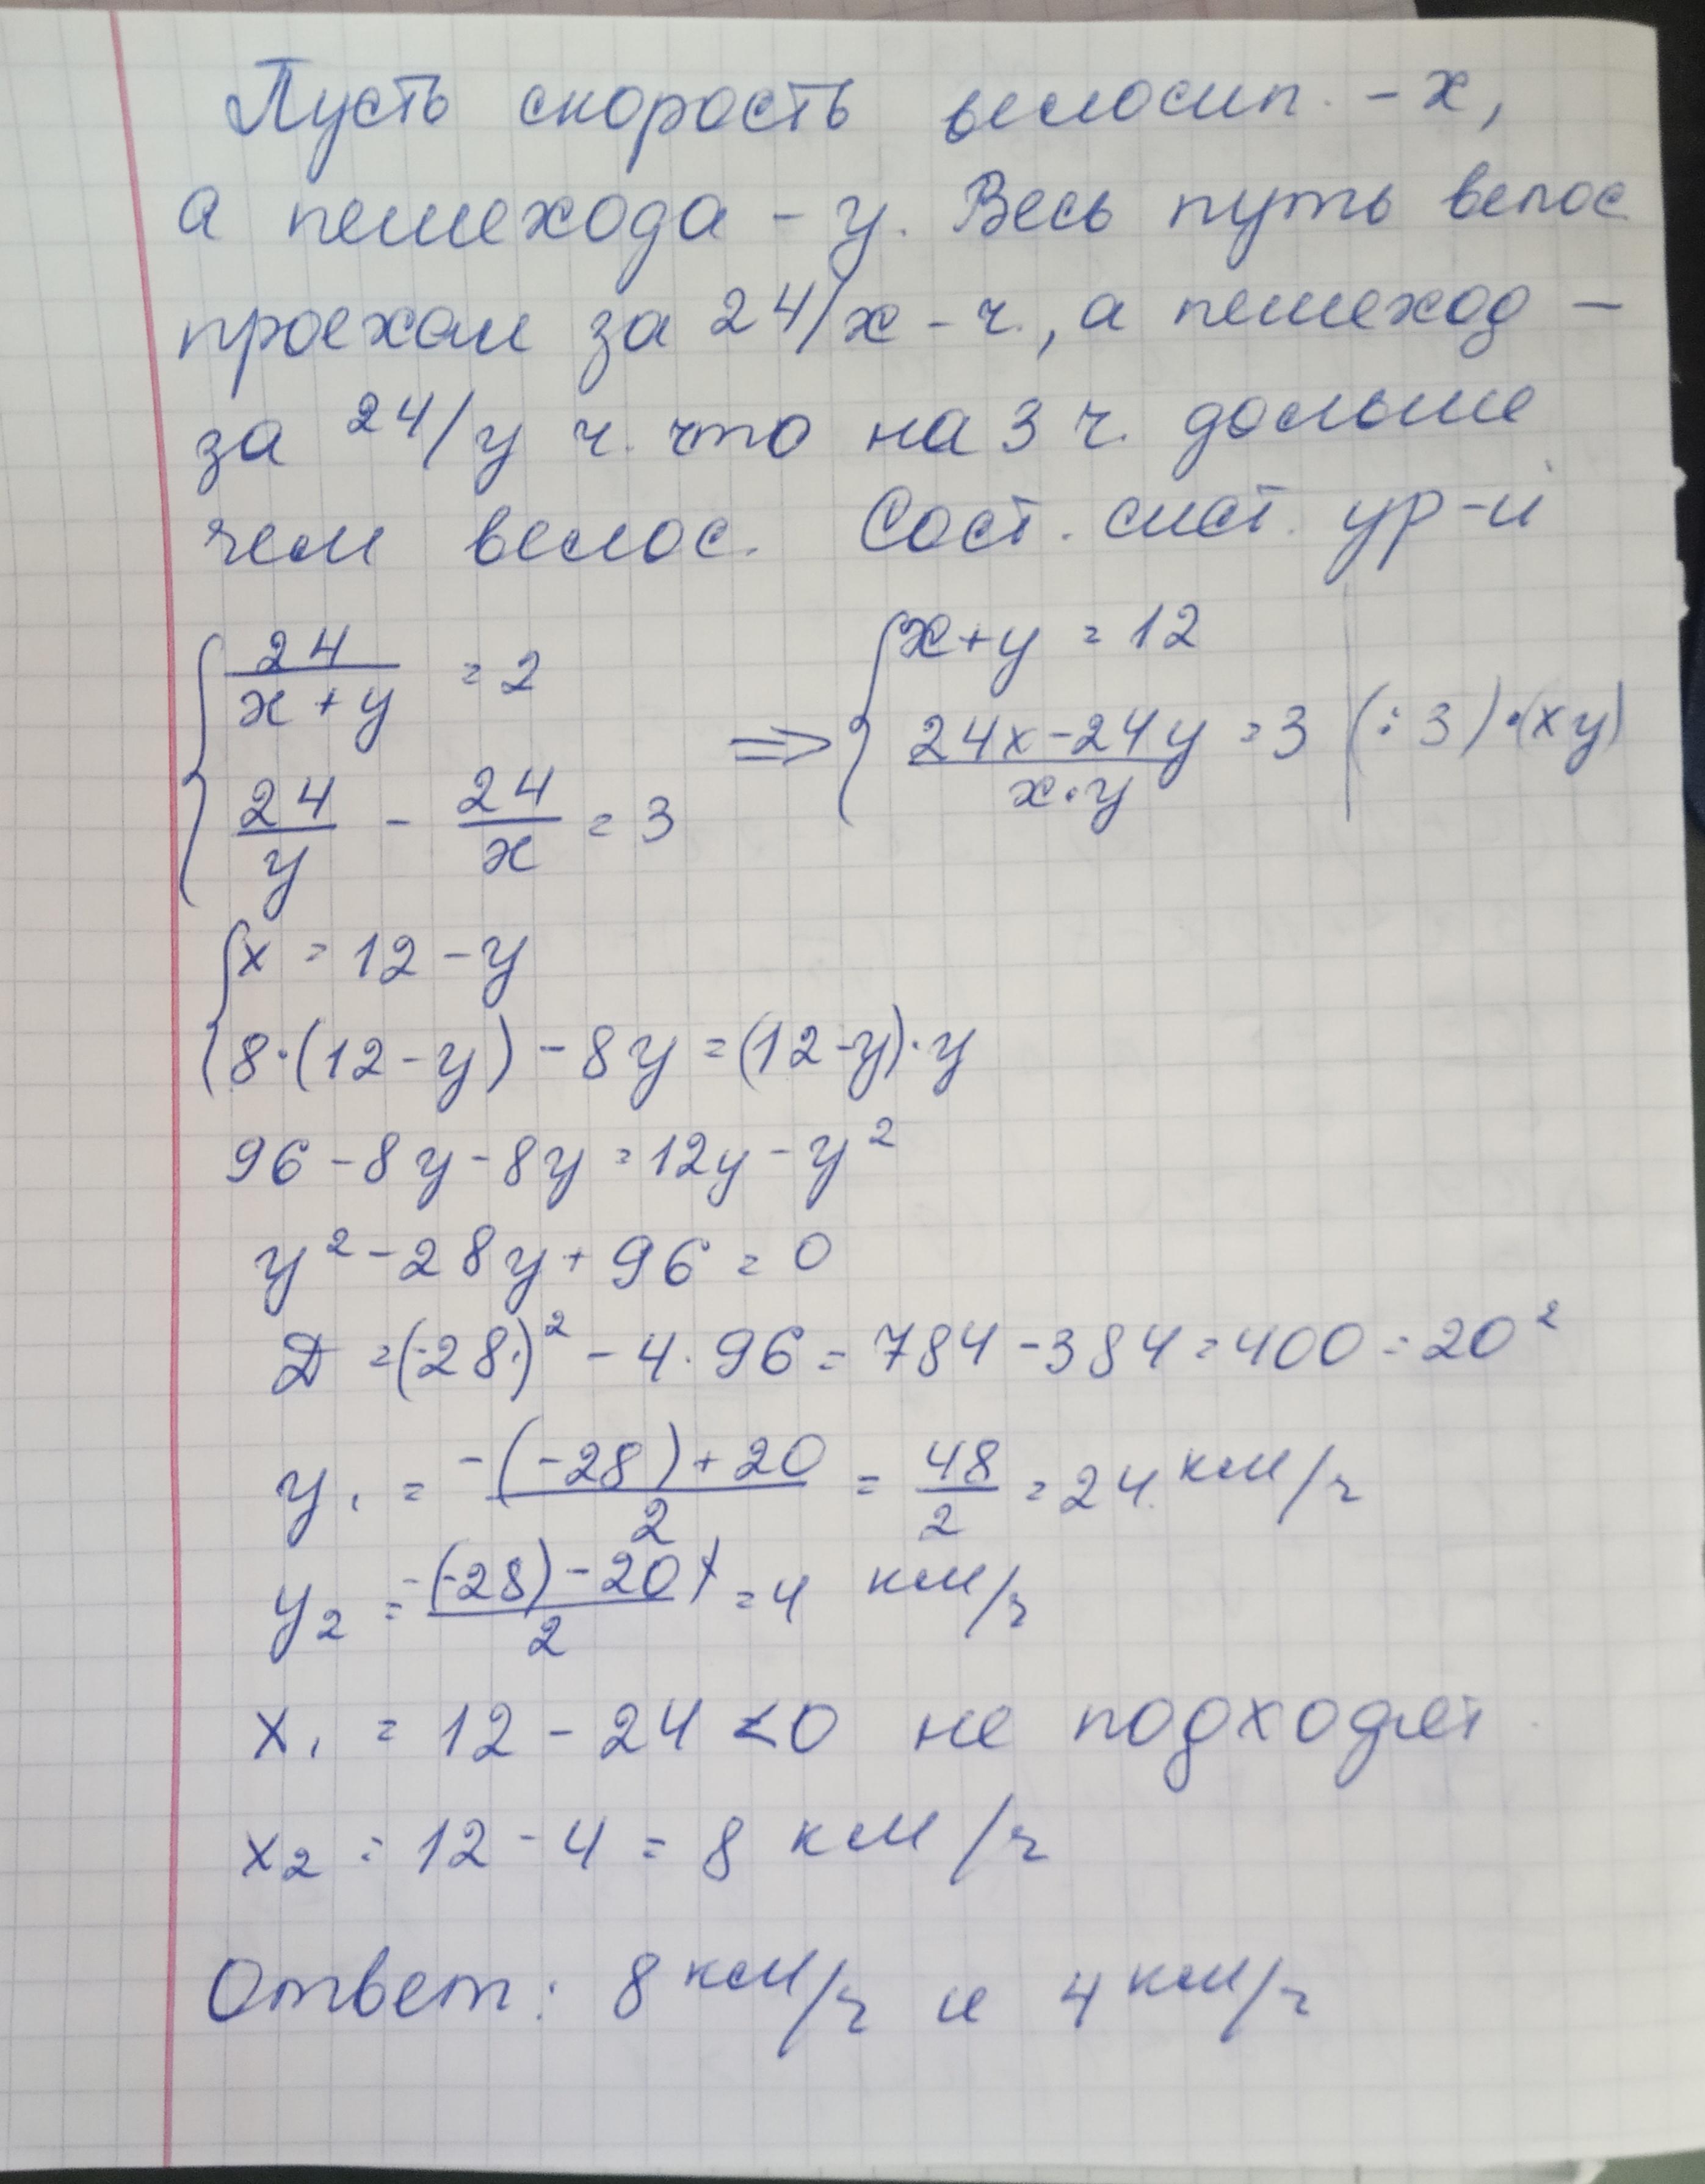 Пусть скорость велосип. - x,
а пешехода - y. Весь путь велос
проехал за 24/x - ч., а пешеход -
за 24/y ч. что на 3 ч. дольше
чем велос. Сост. сист. ур-й
{ 24/(x + y) = 2 => { x + y = 12
{ 24/y - 24/x = 3 { (24x - 24y)/(x·y) = 3 | (:3)·(xy)
{ x = 12 - y
{ 8·(12 - y) - 8y = (12 - y)·y
96 - 8y - 8y = 12y - y²
y² - 28y + 96 = 0
D = (-28)² - 4·96 = 784 - 384 = 400 = 20²
y₁ = (-(-28) + 20)/2 = 48/2 = 24 км/ч
y₂ = (-(-28) - 20)/2 = 4 км/ч
x₁ = 12 - 24 < 0 не подходит
x₂ = 12 - 4 = 8 км/ч
Ответ: 8 км/ч и 4 км/ч